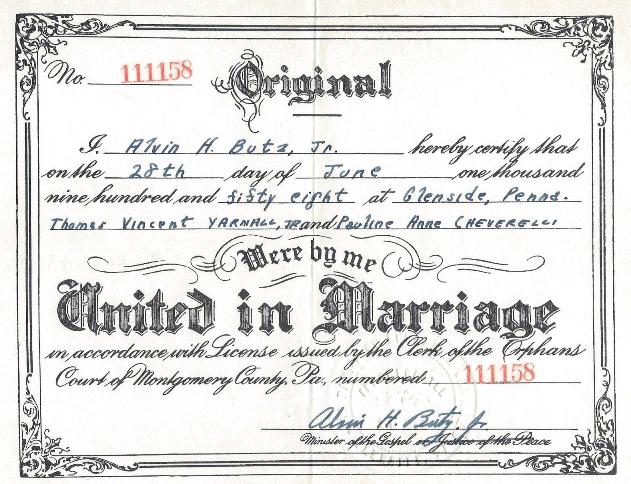 No. 111158
Original
I, Alvin H. Butz, Jr. hereby certify that
on the 28th day of June one thousand
nine hundred and fifty eight at Glenside, Penna.
Thomas Vincent YARNALL, JR and Pauline Anne CHEVERELLI
Were by me
United in Marriage
in accordance with License issued by the Clerk of the Orphans
Court of Montgomery County, Pa., numbered 111158
Alvin H. Butz Jr
Minister of the Gospel or Justice of the Peace